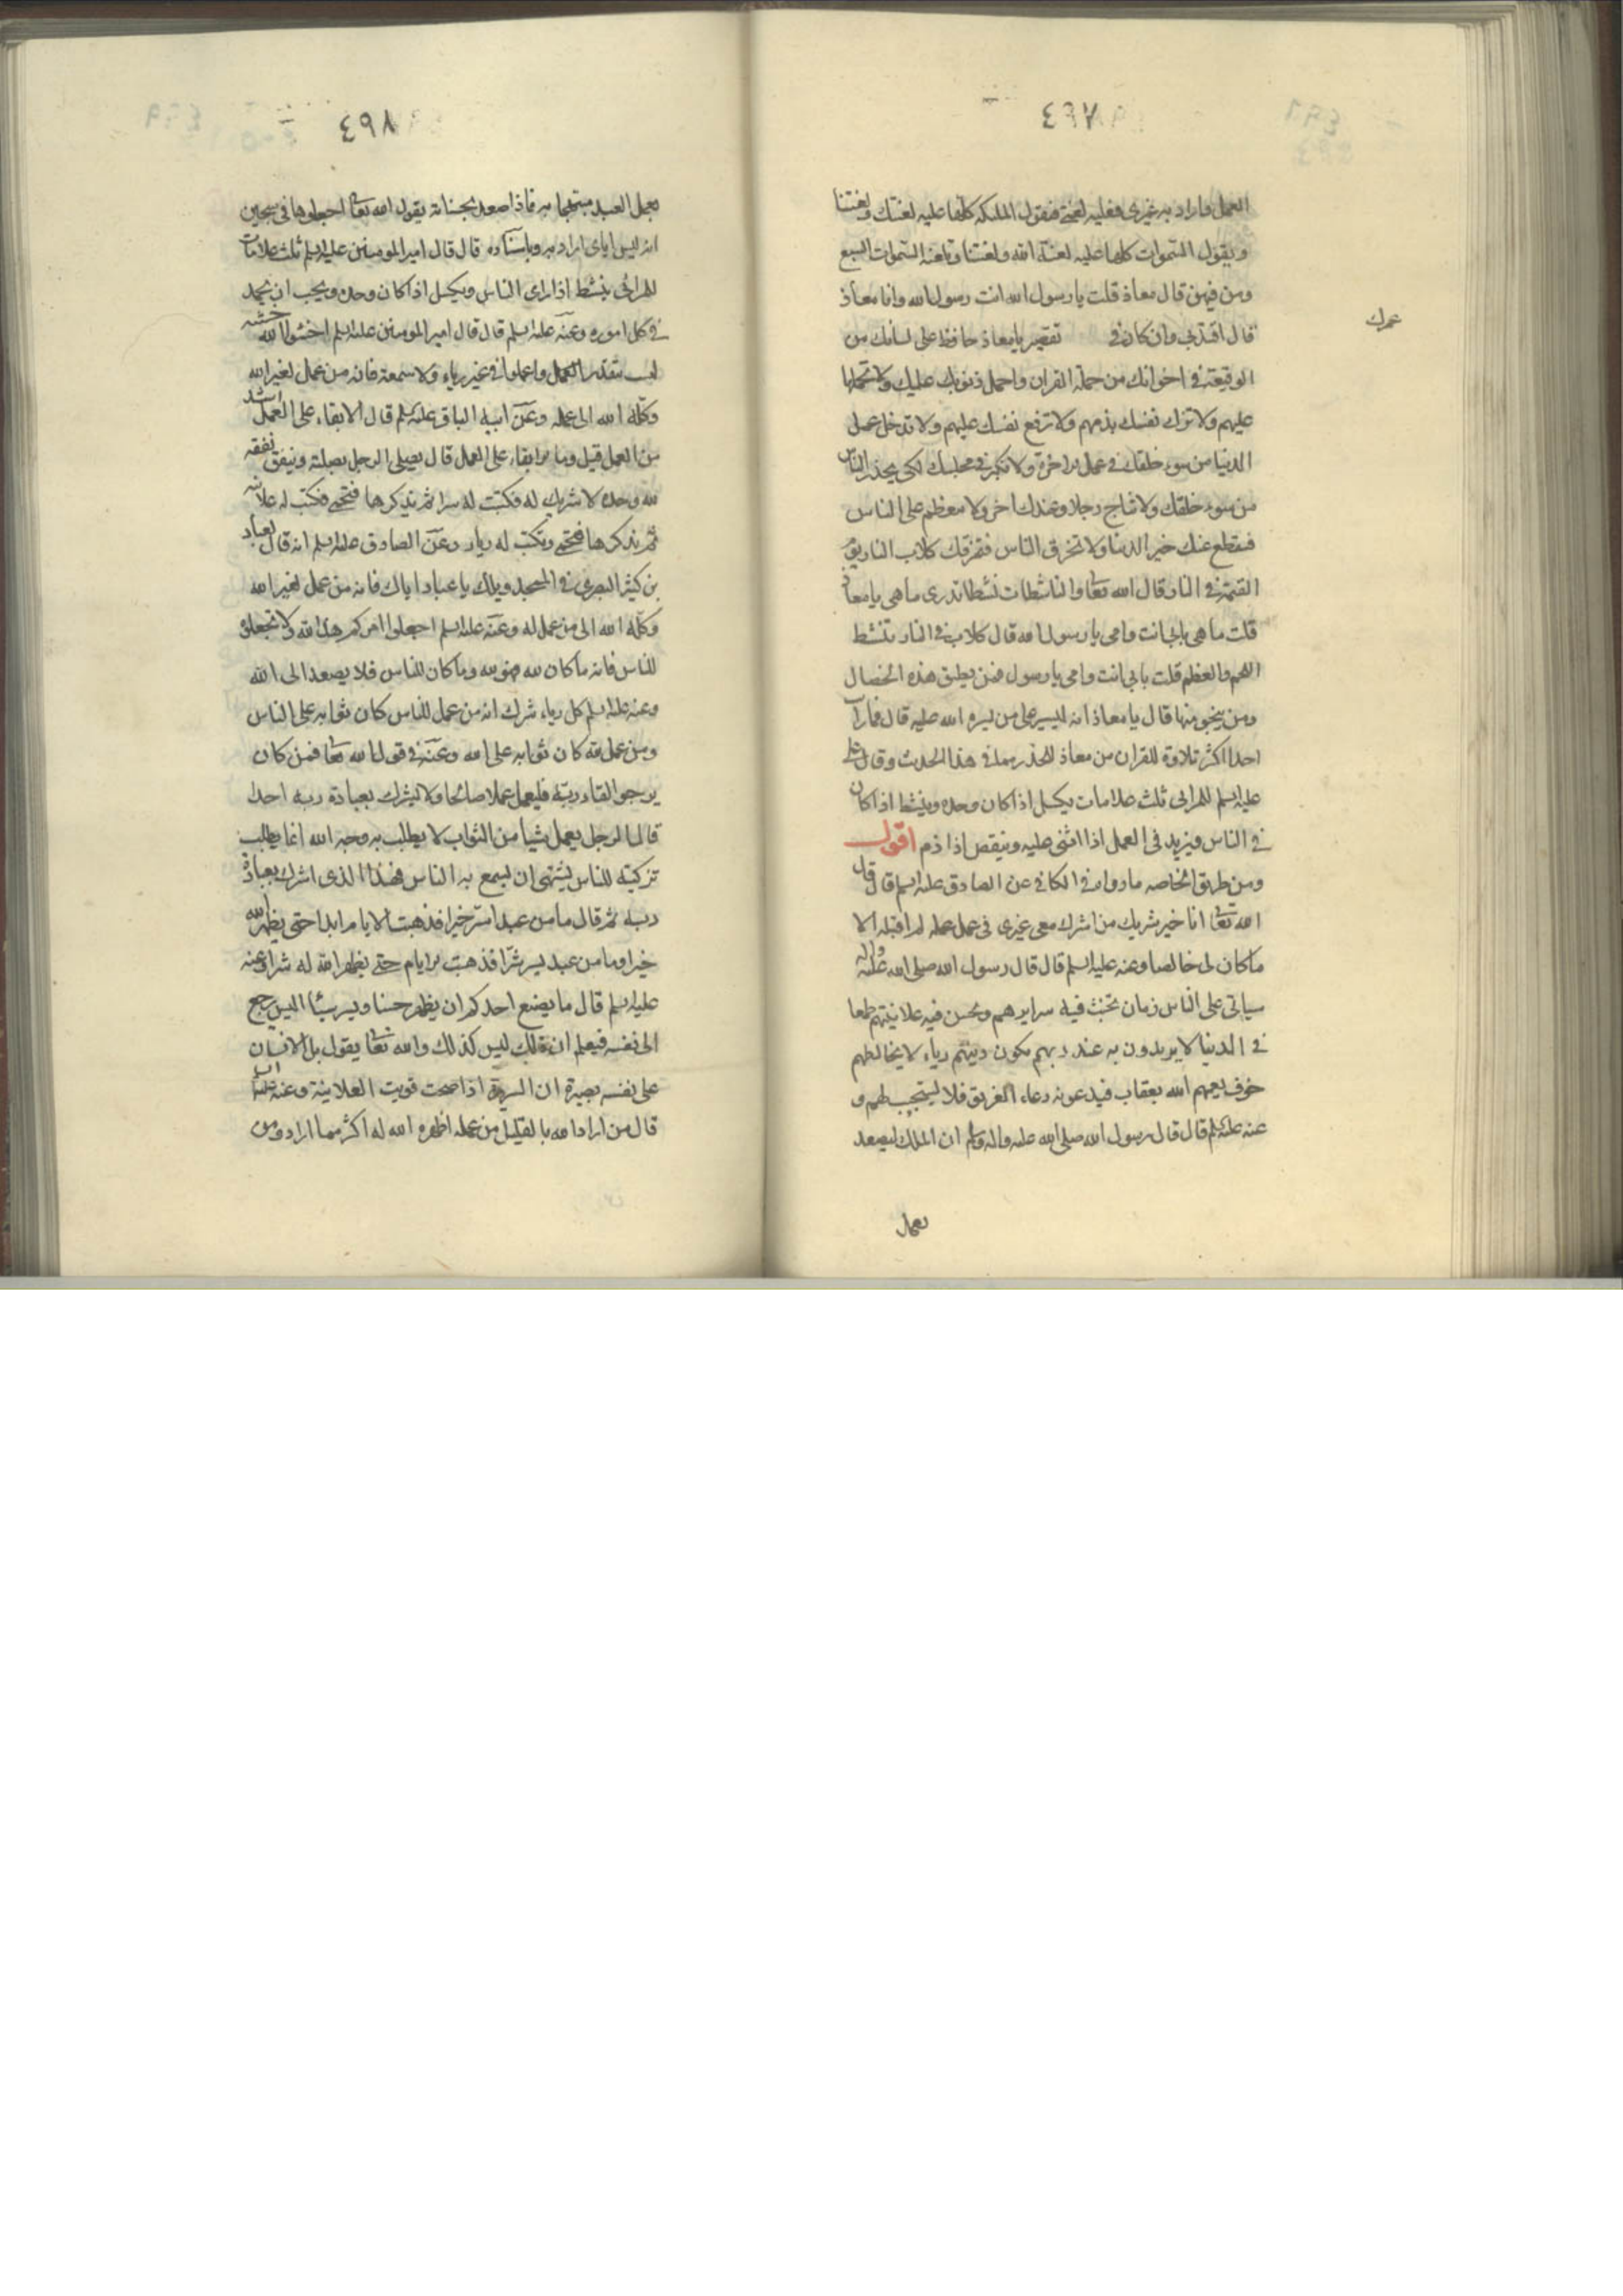 ٤٩٧
العمل واراد به غيري فعليه لعنتي فتقول الملئكة كلها عليه لعنتك ولعنتنا
ويقول السموات كلها عليه لعنة الله ولعنتنا وتلعنه السموات السبع
ومن فيهن قال معاذ قلت يا رسول الله انت رسول الله وانا معاذ
قال اقتد بي وان كان في تقصير يا معاذ حافظ على لسانك من
عملك
الوقيعة في اخوانك من حملة القران واحمل ذنوبك عليك ولا تحملها
عليهم ولا تزك نفسك بذمهم ولا ترفع نفسك عليهم ولا تدخل عمل
الدنيا من سوء خلقك في عمل الاخرة ولا تكبر في مجلسك لكي يحذر الناس
من سوء خلقك ولا تناج رجلا وعندك اخر ولا تعظم على الناس
فينقطع عنك خير الدنيا ولا تخرق الناس فتخرقك كلاب النار يوم
القيمة في النار قال الله تعا والناشطات نشطا تدرى ما هي يا معاذ
قلت ما هي بابي انت وامي يا رسول الله قال كلاب في النار تنشط
اللحم والعظم قلت بابي انت وامي يا رسول فمن يطيق هذه الخصال
ومن ينجو منها قال يا معاذ انه ليسير على من يسره الله عليه قال فما رايت
احدا اكثر تلاوة للقران من معاذ للحذر مما في هذا الحديث وقال علي
عليه السلم للمرائي ثلث علامات يكسل اذا كان وحده وينشط اذا كان
في الناس ويزيد في العمل اذا اثنى عليه وينقص اذا ذم اقول
ومن طريق الخاصه ما رواه في الكافي عن الصادق عليه السلم قال قال
الله تعا انا خير شريك من اشرك معي غيري في عمل عمله لم اقبله الا
ما كان لي خالصا وعنه عليه السلم قال قال رسول الله صلى الله عليه واله
سياتي على الناس زمان تخبث فيه سرايرهم وتحسن فيه علانيتهم طمعا
في الدنيا لا يريدون به عند ربهم يكون دينهم رياء لا يخالطهم
خوف يعمهم الله بعقاب فيدعونه دعاء الغريق فلا يستجيب لهم و
عنه عليه السلم قال قال رسول الله صلى الله عليه واله وسلم ان الملك ليصعد
بعمل
٤٩٨
بعمل العبد مبتهجا به فاذا صعد بحسناته يقول الله تعا اجعلوها في سجين
انه ليس اياى اراد به وباسناده قال قال امير المومنين عليه السلم ثلث علامات
للمرائي ينشط اذا راى الناس ويكسل اذا كان وحده ويحب ان يحمد
في كل اموره وعنه عليه السلم قال قال امير المومنين عليه السلم اخشوا الله خشية
ليست بتقدير العمل واعملوا في غير رياء ولا سمعة فانه من عمل لغير الله
وكله الله الى عمله وعن ابيه الباقر عليه السلم قال الابقاء على العمل اشد
من العمل قيل وما الابقاء على العمل قال يصلى الرجل بصلة وينفق نفقه
لله وحده لا شريك له فكتبت له سرا ثم يذكرها فتمحى فتكتب له علانيه
ثم يذكرها فتمحى وتكتب له رياء وعن الصادق عليه السلم انه قال لعباد
بن كثير البصرى في المسجد ويلك يا عباد اياك فانه من عمل لغير الله
وكله الله الى من عمل له وعنه عليه السلم اجعلوا امركم هذا لله ولا تجعلوه
للناس فانه ما كان لله فهو لله وما كان للناس فلا يصعد الى الله
وعنه عليه السلم كل رياء شرك انه من عمل للناس كان ثوابه على الناس
ومن عمل لله كان ثوابه على الله وعنه في قول الله تعا فمن كان
يرجوا لقاء ربه فليعمل عملا صالحا ولا يشرك بعبادة ربه احدا
قال الرجل يعمل شيا من الثواب لا يطلب به وجه الله انما يطلب
تزكيته للناس يشتهى ان يسمع به الناس فهذا الذى اشرك بعبادة
ربه ثم قال ما من عبد اسر خيرا فذهبت الايام ابدا حتى يظهر الله له
خيرا وما من عبد يسر شرا فذهبت الايام حتى يظهر الله له شرا وعنه
عليه السلم قال ما يصنع احدكم ان يظهر حسنا ويسر سيئا اليس يرجع
الى نفسه فيعلم ان ذلك ليس كذلك والله تعا يقول بل الانسان
على نفسه بصيرة ان السريرة اذا صحت قويت العلانية وعنه عليه السلم
قال من اراد الله بالقليل من عمله اظهره الله له اكثر مما اراد ومن